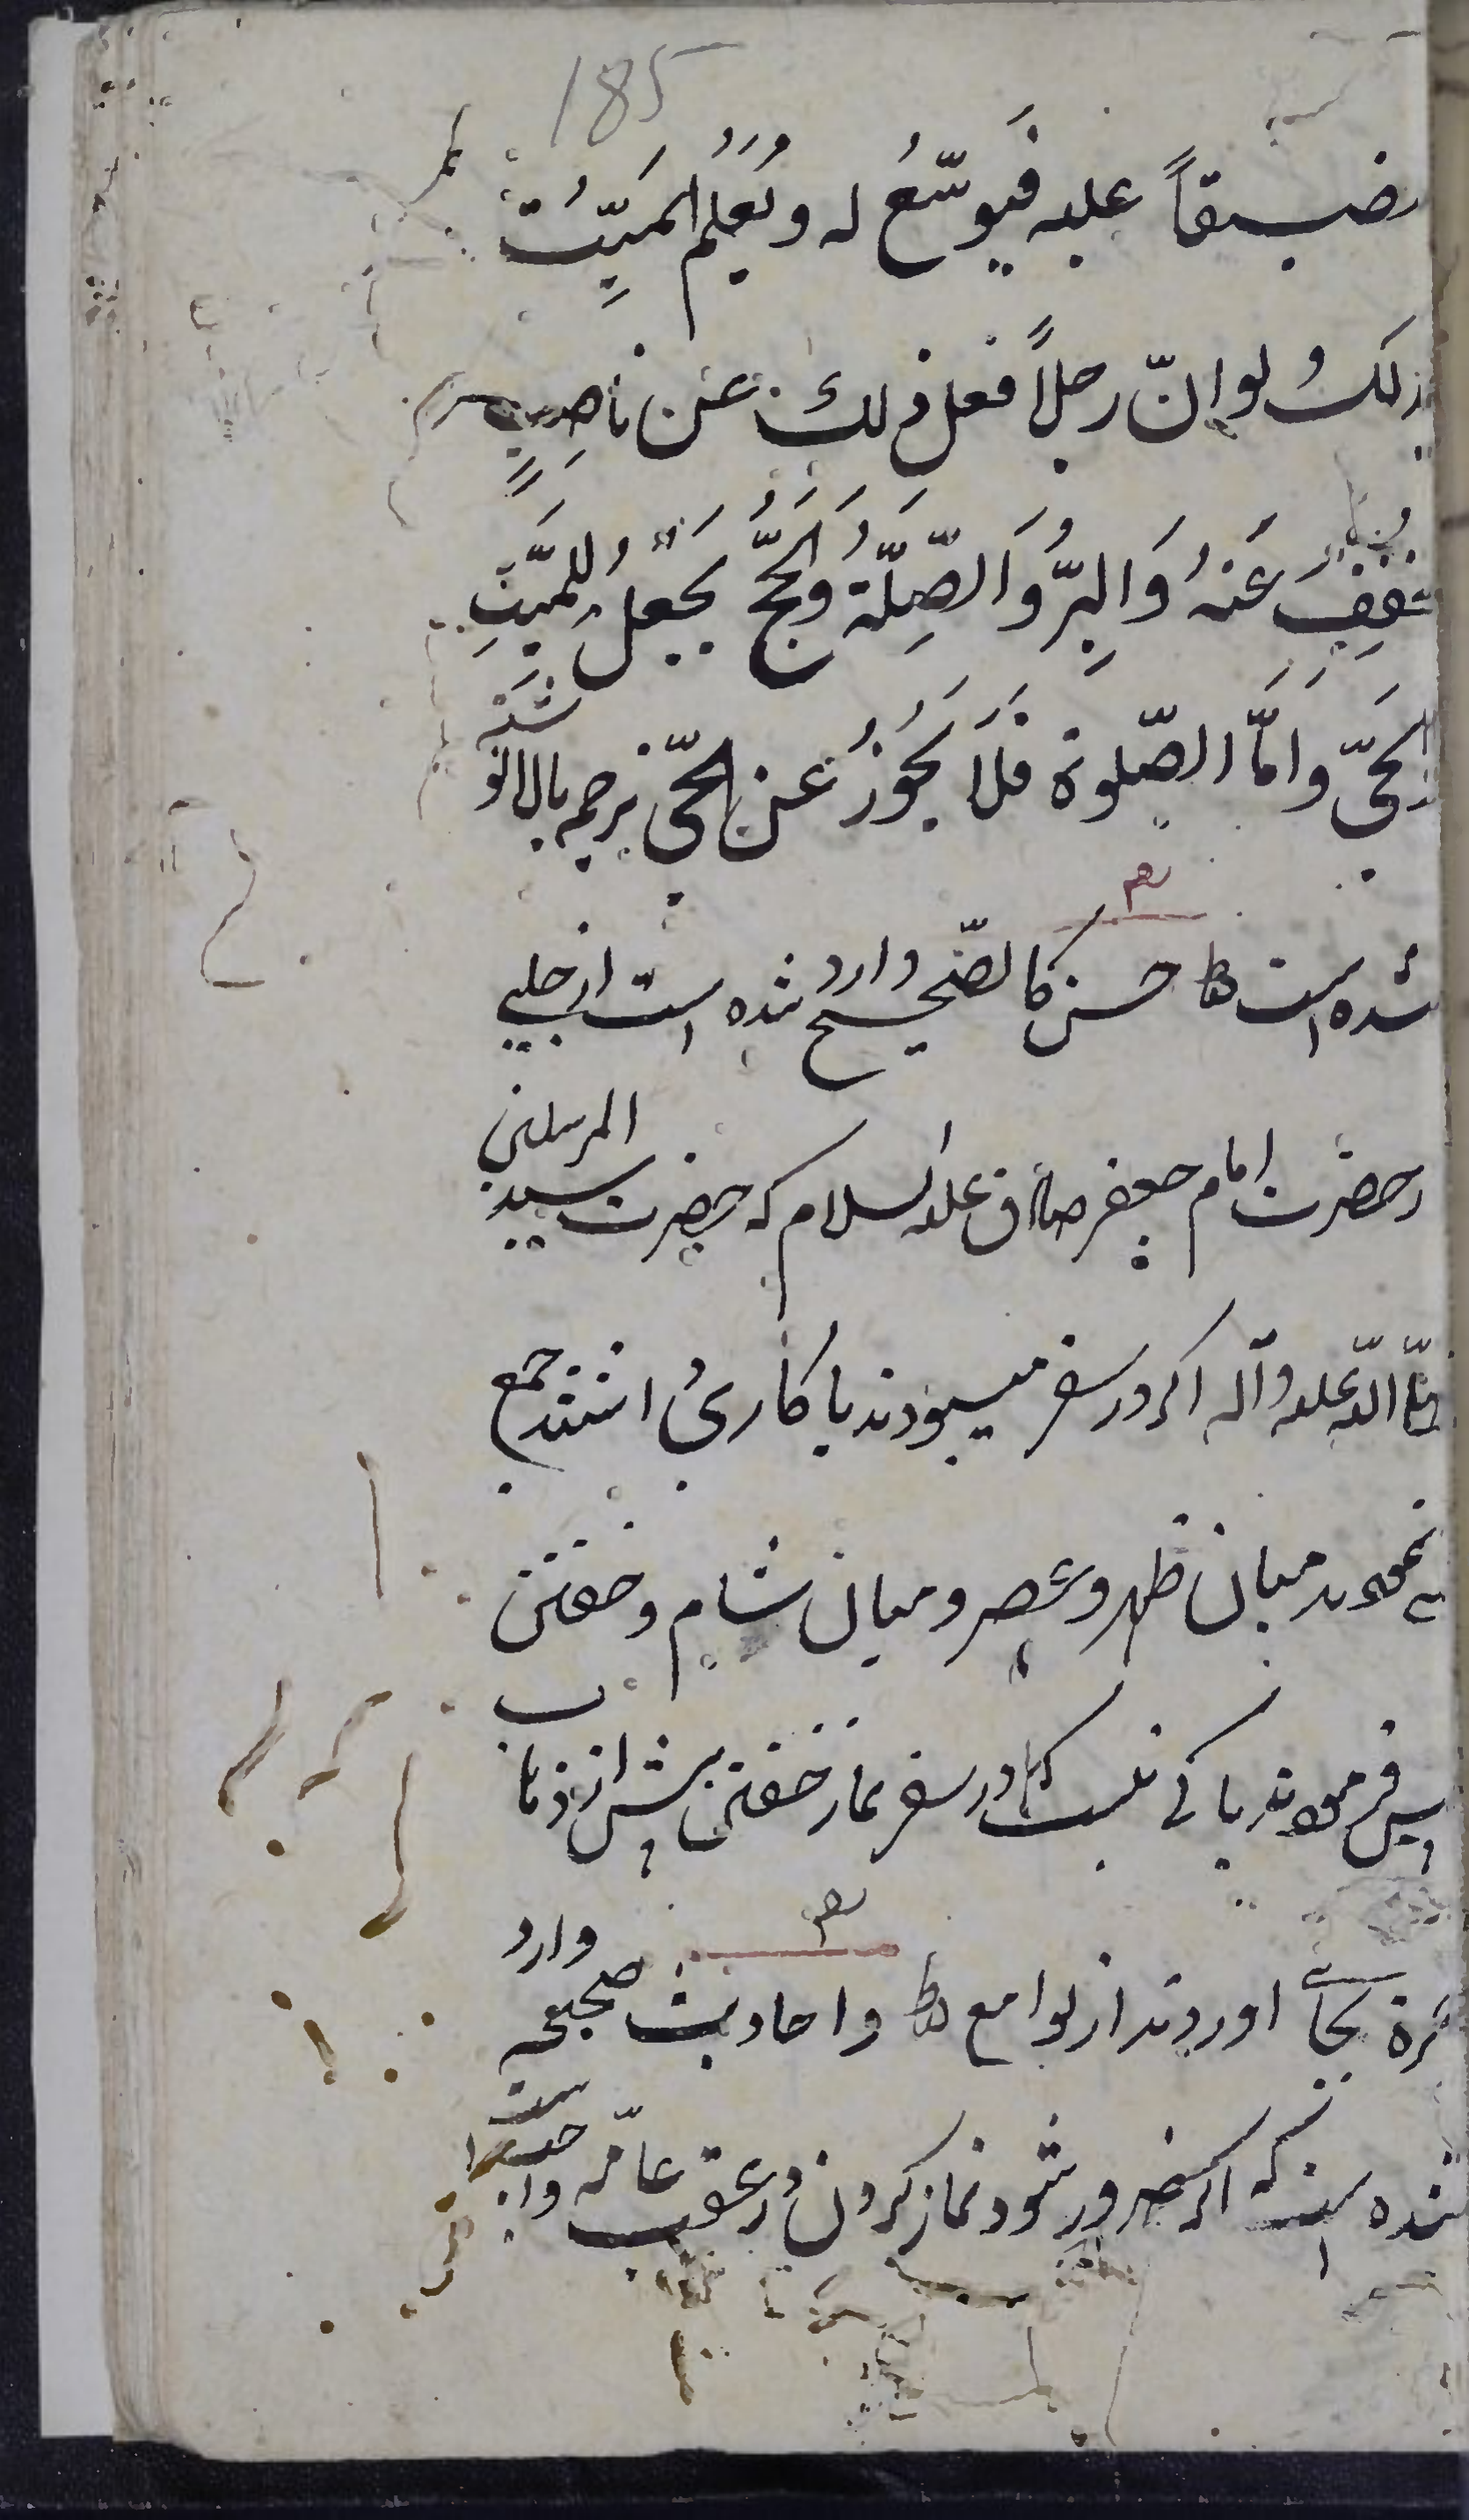 185
ضیقاً علیه فیوسّعُ له و یُعلم المَیّتُ
بذلکُ لو انّ رجلاً فعل ذلك عن ناصِبٍ
یخفف عَنهُ وَالبِرُّ وَالصِّلَةُ وَالحَجُّ یجعلُ للمیّتِ
وَالحَیِّ وَاَمَّا الصّلوة فَلَا یَجُوزُ عَنِ الحَیّ ترجمه بالا نوشته
شده است حسن کالصّحیح وارد شده است از حلبی
از حضرت امام جعفر صادق علیه السلام که حضرت سید المرسلین
صلّی الله علیه و آله اکر در سفر میبودند یا کاری داشتند جمع
می نمودند میان ظهر و عصر و میان شام و خفتن
پس فرمودند باکی نیست که در سفر نماز خفتن پیش از ذهاب
حمرة بجای آوردند از لوامع و احادیث صحیحه وارد
شده است که اکر ضرور شود نماز کردن در عقب عامّه واجبست